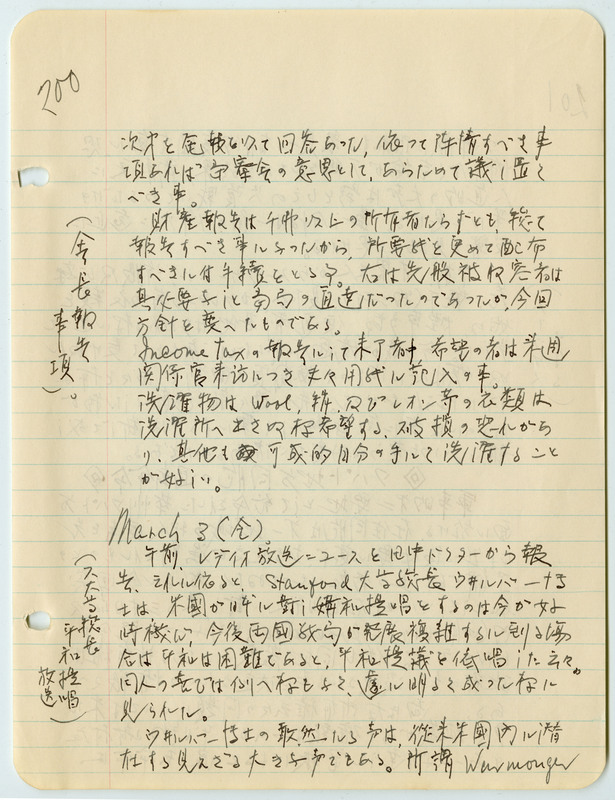 200
次才を電報以て回答あった, 依つて陳情すべき事
項あれば審会の意思として, あらためて議し置く
べき事。
財産報告は千弗以上の所有者たらずとも, 総て
報告すべき事になったから, 所要紙を更めて配布
すべきに付手続をとる事。右は先般被収容者は
其必要なしと当局の通達だったのであったが, 今回
方針を変へたものである。
Income taxの報告にして未了者中, 希望の者は来週
関係官来訪につき夫々用紙に記入の事。
洗濯物は Wool, 絹, 及びレオン等の衣類は
洗濯所へ出さぬ様希望する, 破損の恐れがあ
り, 其他も可成的自分の手にて洗濯すること
が好い。
(会長報告事項)。
March 3 (金)。
午前, レデイオ放送ニュースを田中ドクターから報
告, それに依ると, Stanford 大学総長ウヰルバー博
士は 米國が日に對し媾和提唱をするのは今が好
時機で, 今後両國戦局が発展複雑するに到る場
合は平和は困難であると, 平和提議を低唱した云々。
同人の意では例へ様もなく, 遽に明るく成った様に
見られた。
ウヰルバー博士の敢然たる声は, 従来米國内に潜
在する見えざる大きな声である。所謂 Warmonger
(ス大学総長平和提唱放送)